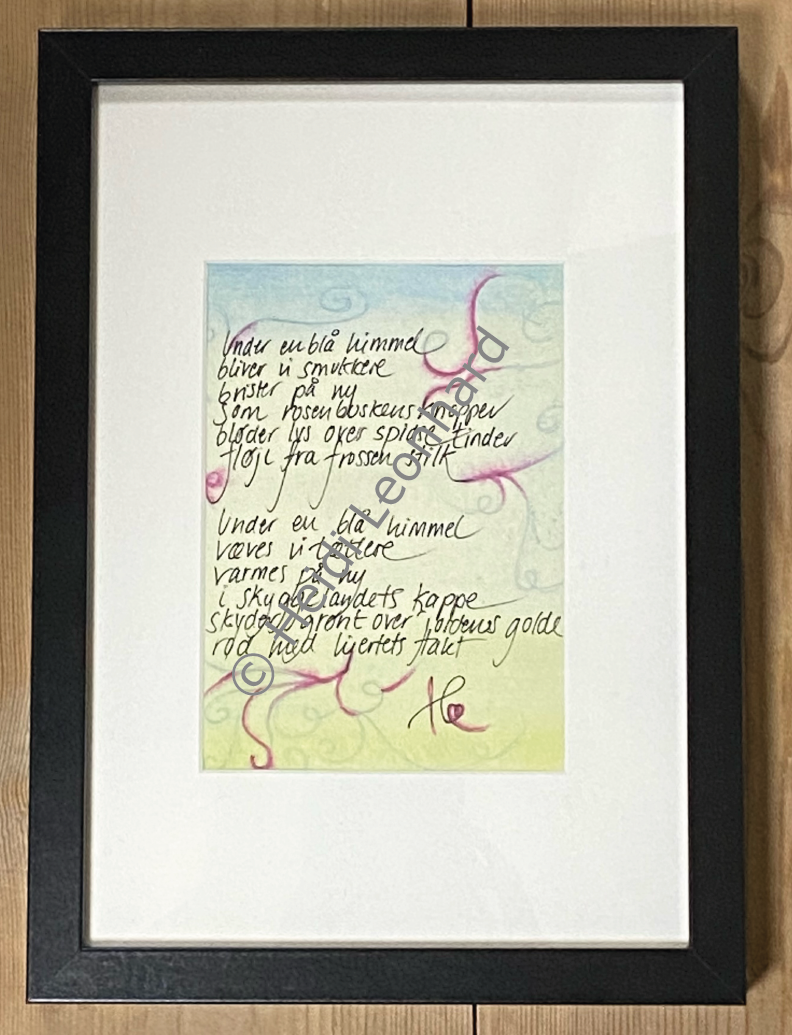 Under en blå himmel
bliver vi smukkere
brister på ny
som rosenbuskens knopper
bløder lys over spidse tinder
fløjl fra frossen stilk
Under en blå himmel
væves vi tættere
varmes på ny
i skyggelandets kappe
skyder grønt over jordens golde
rød med hjertets takt
He
© Heidi Leonhard